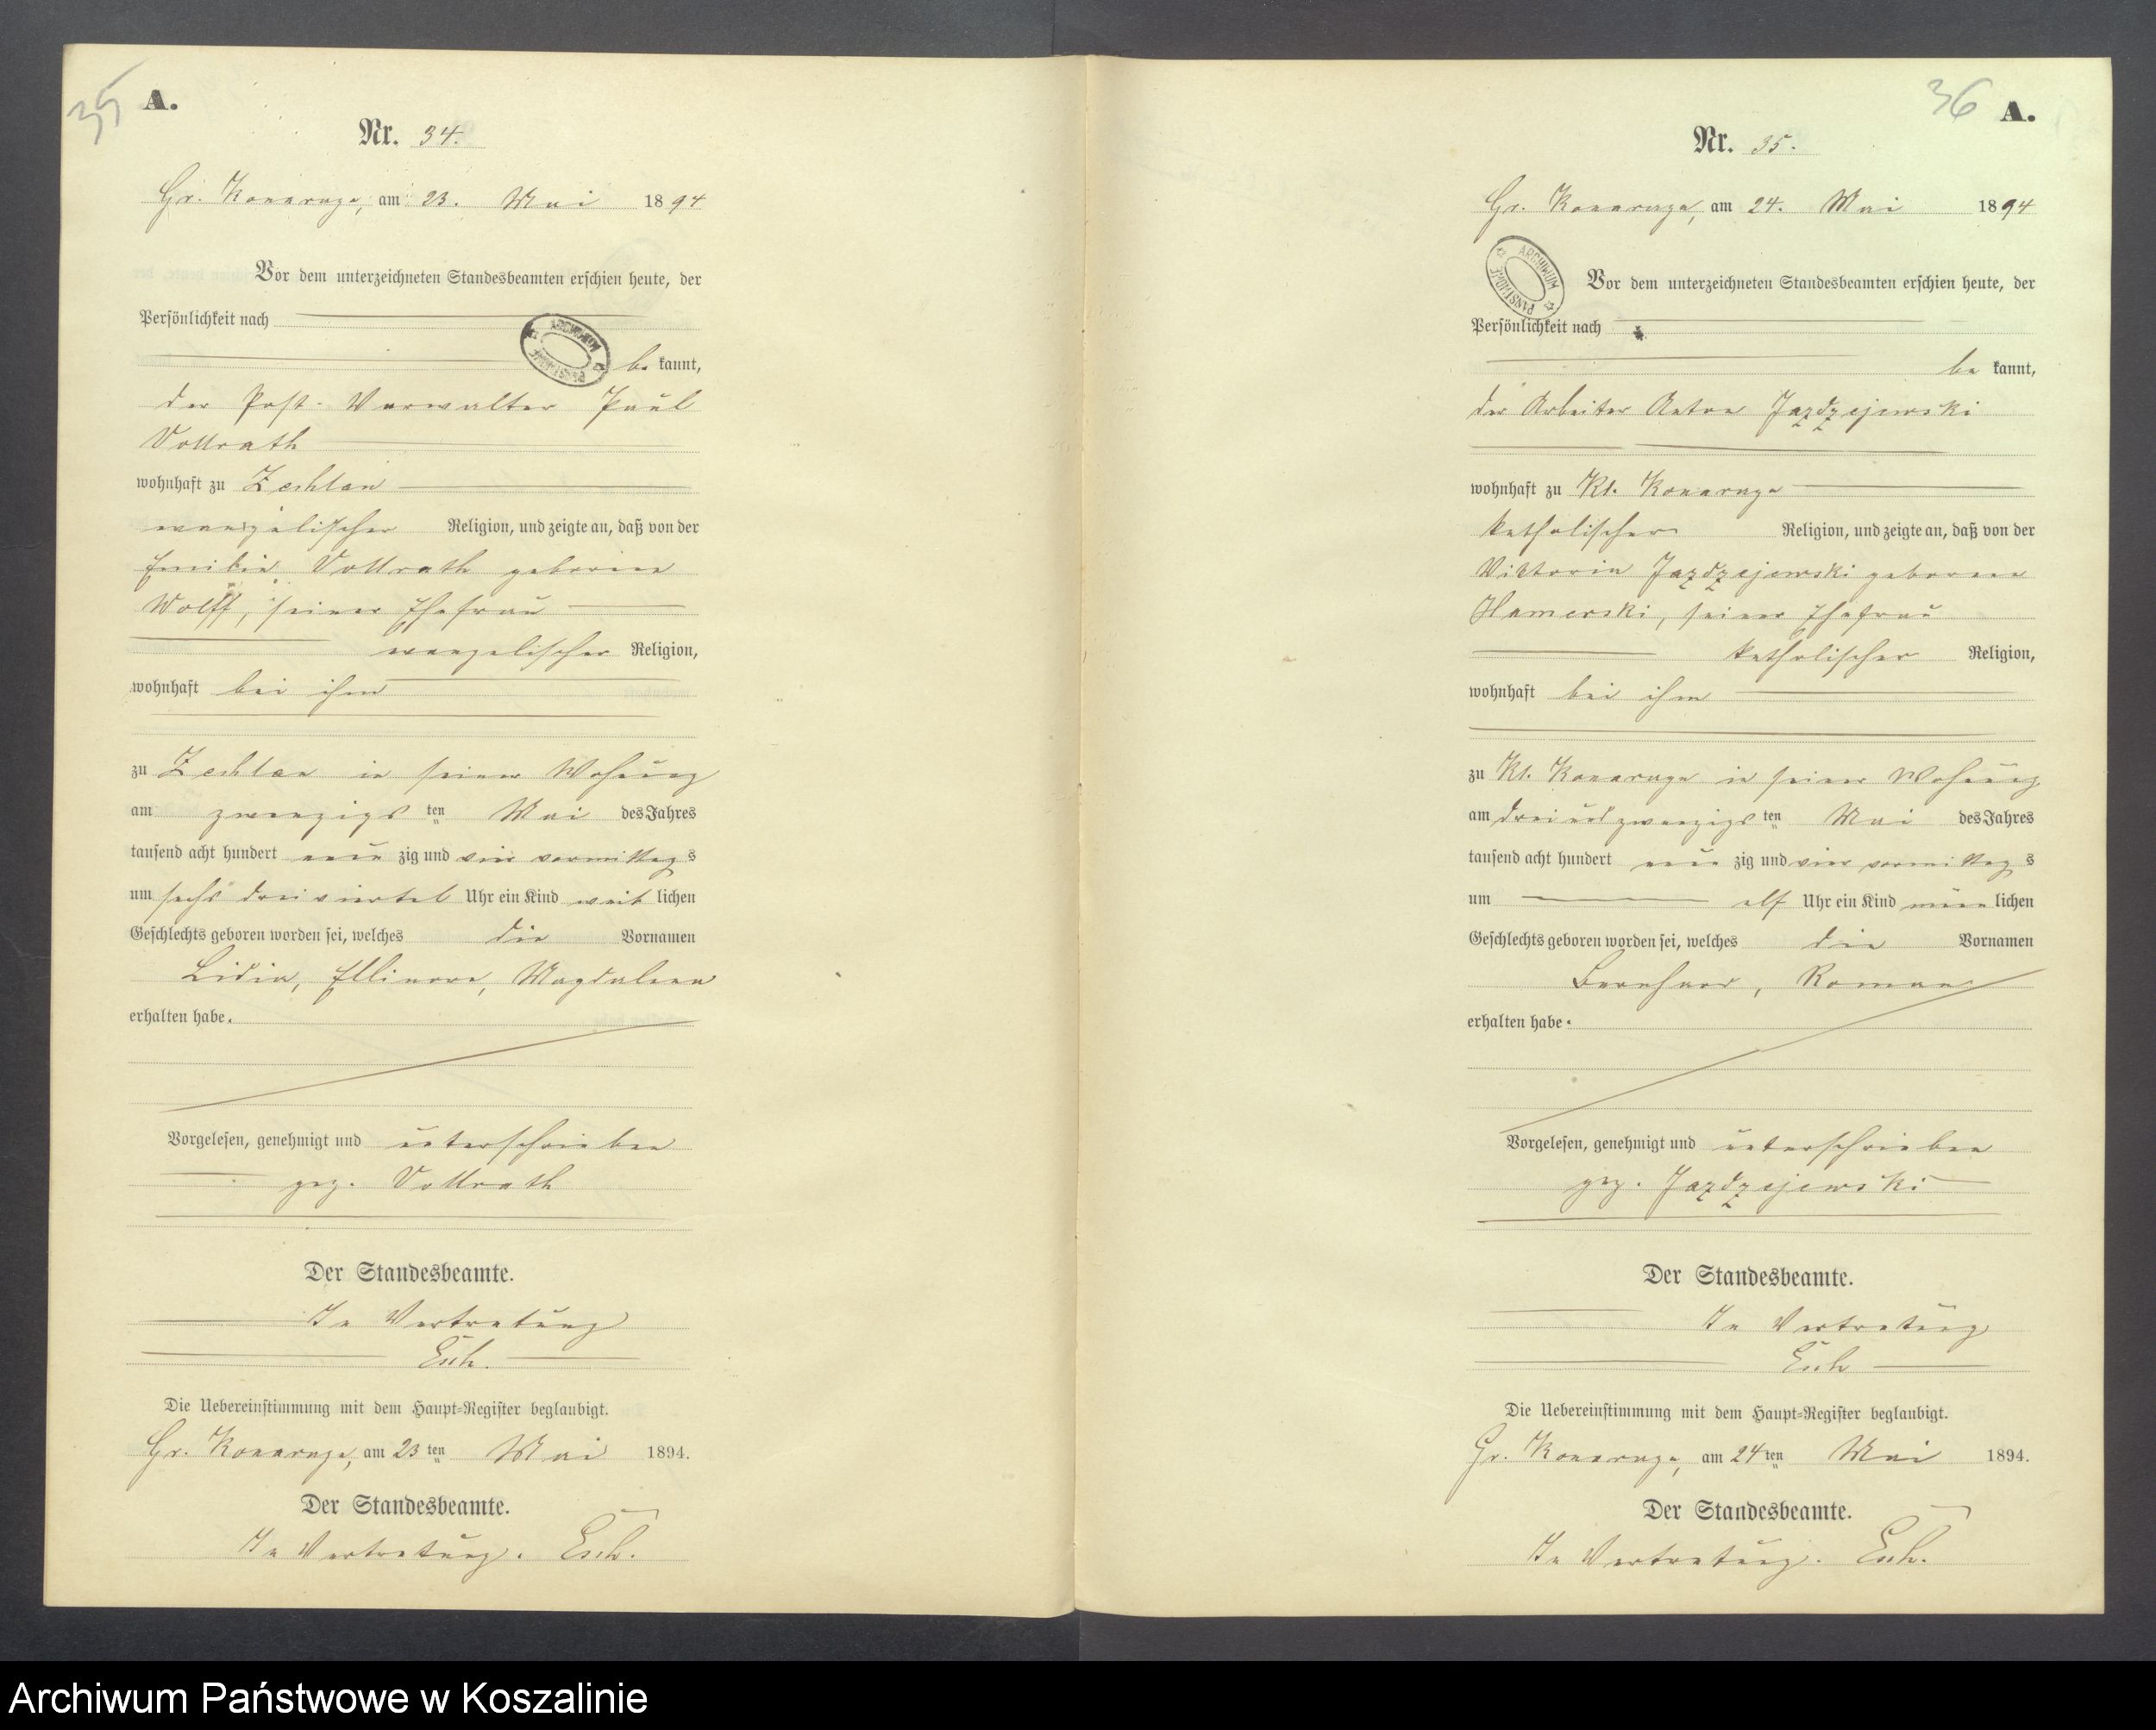 35
A.
Nr. 34.
Gr. Konarzyn, am 23. Mai 1894
Vor dem unterzeichneten Standesbeamten erschien heute, der
Persönlichkeit nach
ARCHIWUM PAŃSTWOWE
be kannt,
der Post-Verwalter Paul
Vollrath
wohnhaft zu Zechlau
evangelischer Religion, und zeigte an, daß von der
Emilie Vollrath geborene
Wolff, seiner Ehefrau
evangelischer Religion,
wohnhaft bei ihm
zu Zechlau in seiner Wohnung
am zwanzigs ten Mai des Jahres
tausend acht hundert neun zig und vier vormittag s
um sechs dreiviertel Uhr ein Kind weib lichen
Geschlechts geboren worden sei, welches die Vornamen
Lidia, Ellinore, Magdalena
erhalten habe.
Vorgelesen, genehmigt und unterschrieben
gez. Vollrath
Der Standesbeamte.
In Vertretung
Esch.
Die Uebereinstimmung mit dem Haupt-Register beglaubigt.
Gr. Konarzyn, am 23 ten Mai 1894.
Der Standesbeamte.
In Vertretung. Esch.
36
A.
Nr. 35.
Gr. Konarzyn, am 24. Mai 1894
ARCHIWUM PAŃSTWOWE
Vor dem unterzeichneten Standesbeamten erschien heute, der
Persönlichkeit nach
be kannt,
der Arbeiter Anton Jazdzejewski
wohnhaft zu Kl. Konarzyn
katholischer Religion, und zeigte an, daß von der
Viktoria Jazdzejewski geborene
Hamerski, seiner Ehefrau
katholischer Religion,
wohnhaft bei ihm
zu Kl. Konarzyn in seiner Wohnung
am dreiundzwanzigs ten Mai des Jahres
tausend acht hundert neun zig und vier vormittag s
um elf Uhr ein Kind männ lichen
Geschlechts geboren worden sei, welches die Vornamen
Bernhard, Roman
erhalten habe.
Vorgelesen, genehmigt und unterschrieben
gez. Jazdzejewski
Der Standesbeamte.
In Vertretung
Esch
Die Uebereinstimmung mit dem Haupt-Register beglaubigt.
Gr. Konarzyn, am 24 ten Mai 1894.
Der Standesbeamte.
In Vertretung. Esch.
Archiwum Państwowe w Koszalinie